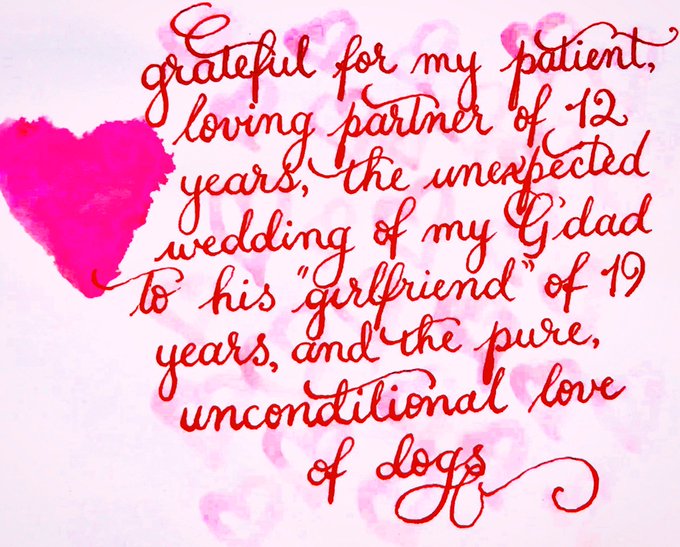 grateful for my patient,
loving partner of 12
years, the unexpected
wedding of my G'dad
to his "girlfriend" of 19
years, and the pure,
unconditional love
of dogs